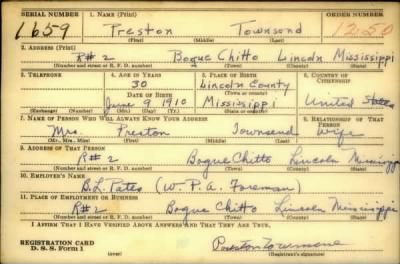 SERIAL NUMBER 1. NAME (Print) ORDER NUMBER
1659 Preston Townsend 1250
(First) (Middle) (Last)
2. ADDRESS (Print)
R#2 Bogue Chitto Lincoln Mississippi
(Number and street or R. F. D. number) (Town) (County) (State)
3. TELEPHONE 4. AGE IN YEARS 5. PLACE OF BIRTH 6. COUNTRY OF CITIZENSHIP
30 Lincoln County
DATE OF BIRTH (Town or county)
June 9 1910 Mississippi United States
(Exchange) (Number) (Mo.) (Day) (Yr.) (State or country)
7. NAME OF PERSON WHO WILL ALWAYS KNOW YOUR ADDRESS 8. RELATIONSHIP OF THAT PERSON
Mrs. Preston Townsend Wife
(Mr., Mrs., Miss) (First) (Middle) (Last)
9. ADDRESS OF THAT PERSON
R#2 Bogue Chitto Lincoln Mississippi
(Number and street or R. F. D. number) (Town) (County) (State)
10. EMPLOYER'S NAME
B.L. Pates (W.P.A. Foreman)
11. PLACE OF EMPLOYMENT OR BUSINESS
R#2 Bogue Chitto Lincoln Mississippi
(Number and street or R. F. D. number) (Town) (County) (State)
I AFFIRM THAT I HAVE VERIFIED ABOVE ANSWERS AND THAT THEY ARE TRUE.
REGISTRATION CARD
D. S. S. Form 1 Preston Townsend
(Registrant's signature)